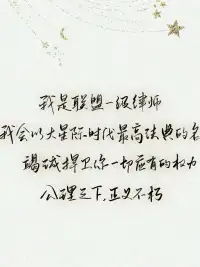 我是联盟一级律师
我会以大星际时代最高法典的名
竭诚捍卫你一切应有的权力
公理之下,正义不朽